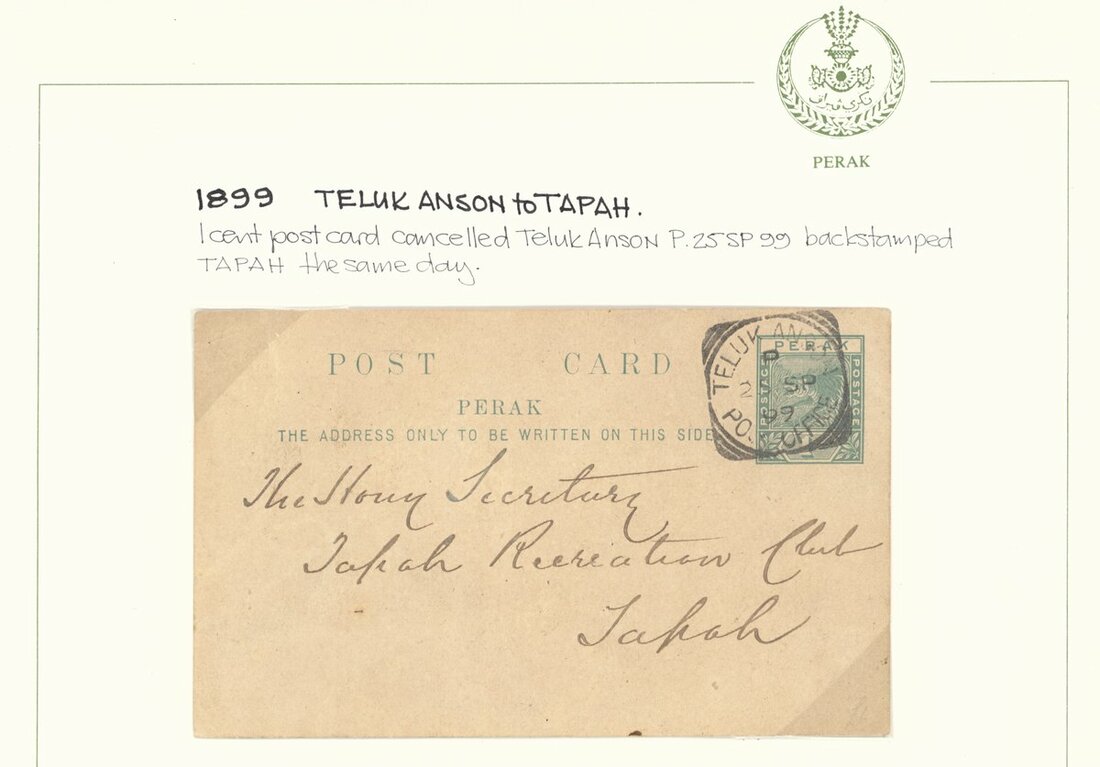 نكري ڤيراق
PERAK
1899 TELUK ANSON to TAPAH.
1 cent post card cancelled Teluk Anson P. 25 SP 99 backstamped
TAPAH the same day.
POST CARD
PERAK
THE ADDRESS ONLY TO BE WRITTEN ON THIS SIDE
TELUK ANSON
P
2 SP
99
POST OFFICE
PERAK
POSTAGE
POSTAGE
The Hony Secretary
Tapah Recreation Club
Tapah